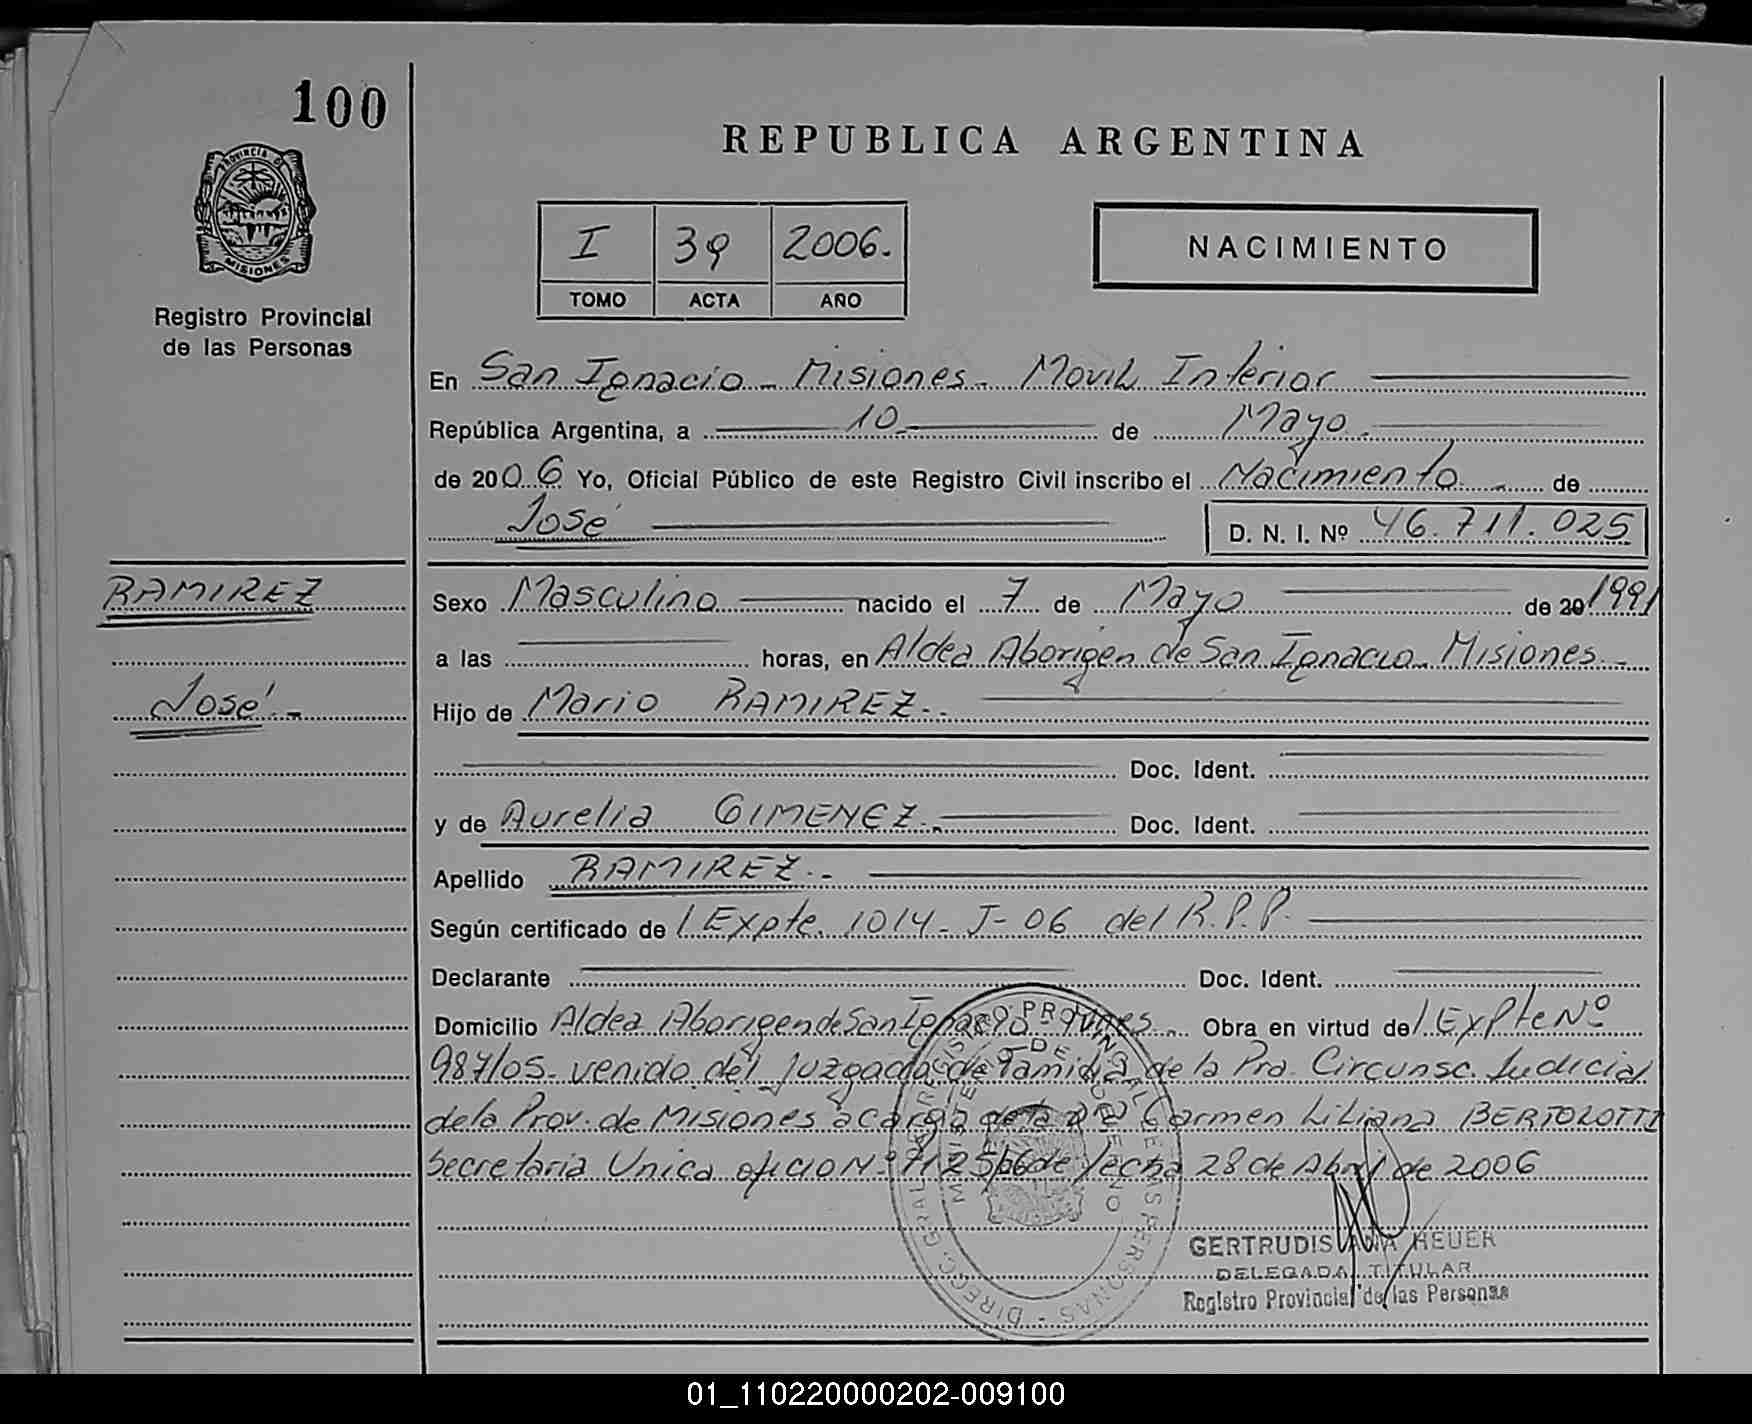 100
PROVINCIA DE
MISIONES
Registro Provincial
de las Personas
REPUBLICA ARGENTINA
I 39 2006.
TOMO ACTA AÑO
NACIMIENTO
En San Ignacio - Misiones - Movil Interior
República Argentina, a 10 de Mayo
de 2006 Yo, Oficial Público de este Registro Civil inscribo el Nacimiento de
José D. N. I. Nº 46.711.025
RAMIREZ
José.-
Sexo Masculino nacido el 7 de Mayo de 20 1991
a las horas, en Aldea Aborigen de San Ignacio - Misiones.-
Hijo de Mario RAMIREZ.-
Doc. Ident.
y de Aurelia GIMENEZ.- Doc. Ident.
Apellido RAMIREZ.-
Según certificado de / Expte. 1014 - J - 06 del R.P.P.
Declarante Doc. Ident.
Domicilio Aldea Aborigen de San Ignacio - Mnes.- Obra en virtud de / Expte Nº
987/05 - venido del Juzgado de Familia de la Pra. Circunsc. Judicial
de la Prov. de Misiones a cargo de la Dra Carmen Liliana BERTOLOTTI
Secretaria Unica oficio Nº de fecha 28 de Abril de 2006
DIRECC. GRAL. DE REGISTRO PROVINCIAL DE LAS PERSONAS
MINISTERIO DE GOBIERNO
GERTRUDIS ANA HEUER
DELEGADA TITULAR
Registro Provincial de las Personas
01_110220000202-009100